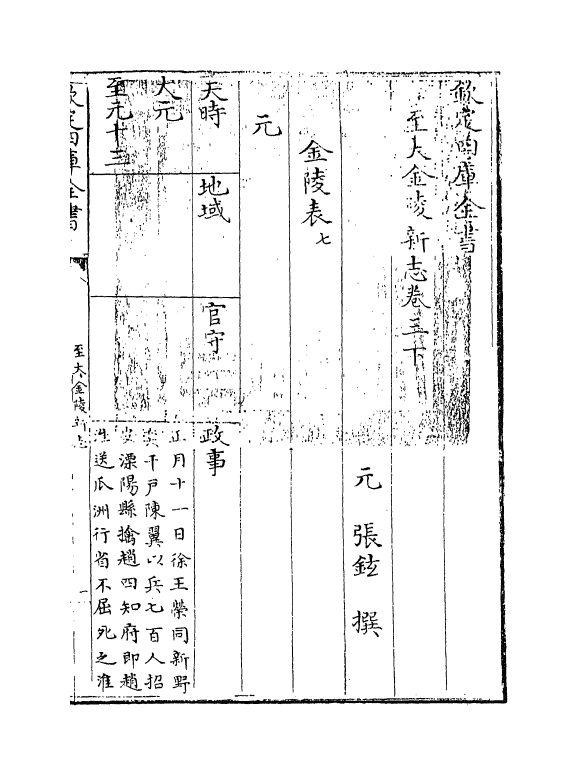 欽定四庫全書
至大金陵新志卷三下
元　張鉉　撰
金陵表七
元
天時　地域　官守　政事
大元
至元十三
正月十一日徐王榮同新野
千戶陳翼以兵七百人招
安溧陽縣擒趙四知府即趙
淮送瓜洲行省不屈死之淮
欽定四庫全書
至大金陵新志